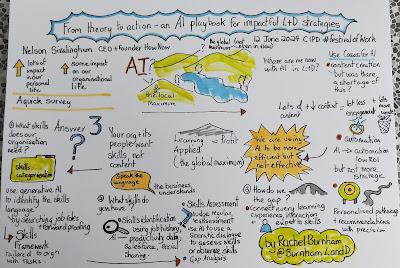 From theory to action - an AI playbook for impactful L+D strategies
Nelson Sivalingham CEO + Founder HowNow
12 June 2024 CIPD #festivalofwork
lots of
impact
in our
personal
life
some
impact on
our
organisational
life.
A quick survey
AI
the global (not
maximum even in view)
the local
maximum
Where are we now
with AI in L+D?
Use Cases for AI
content creation
- but was there
a shortage of
this?
Lots of ++ content = let less + less
engagement
wanted
automation
AI → automation
low ROI
but not more
strategic
We are using
AI to be more
efficient but
not effective
Answer 3
① What skills
does our
organisation
need?
Skills
categorisation
use generative AI
to identify the skills
language
- by searching job roles
+ forward proofing
↳ Skills
Framework
tailored to orgn
with tasks.
Your org + its
people want
skills, not
content
Speak the
language
the business
understands
Learning
Applied = Profit
(the global maximum)
② What skills do
you have?
Skills identification
using job history,
productivity data,
Salesforce, Social
Sharing.
Skills Assessment
nudge regular
reassessment
use AI to use a
Socratic dialogue
to assess skills
or observe skills
Gap Analysis
③ How do we
the gap?
Connect every learning
experience, interaction
+ expert to skills
Personalised pathways
+ recommendations
with precision
by Rachel Burnham
@BurnhamLandD